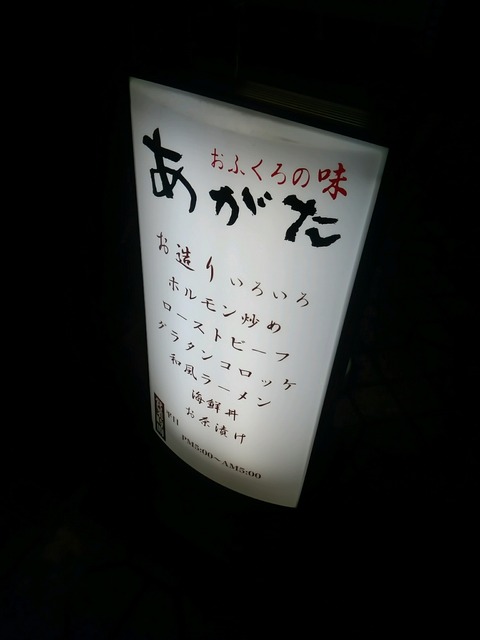 おふくろの味
あがた
お造りいろいろ
ホルモン炒め
ローストビーフ
グラタンコロッケ
和風ラーメン
海鮮丼
お茶漬け
平日 PM5:00〜AM5:00